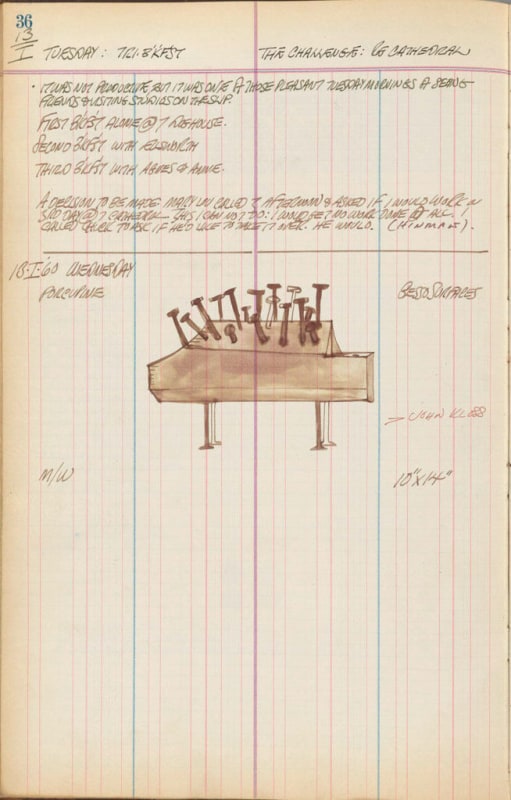 36
13
I TUESDAY: TRI-B'KFST THE CHALLENGE: RE CATHEDRAL
• IT WAS NOT PRODUCTIVE BUT IT WAS ONE OF THOSE PLEASANT TUESDAY MORNINGS OF SEEING
FRIENDS & VISITING STUDIOS ON THE SLIP.
FIRST B'KFST ALONE @ 7 FIREHOUSE.
SECOND B'KFST WITH ELLSWORTH
THIRD B'KFST WITH AGNES & ANNE.
A DECISION TO BE MADE: MARY CALLED AFTERNOON & ASKED IF I WOULD WORK IN
3RD DAY @ CATHEDRAL THIS I CAN NOT DO: I WOULD GET NO WORK DONE AT ALL. I
CALLED CHUCK TO ASK IF HE'D LIKE TO TAKE IT OVER. HE WOULD. (HINMAN).
13·I·60 WEDNESDAY
PORCUPINE GESSO SURFACES
> JOHN KLOSS
M/W 10"X14"